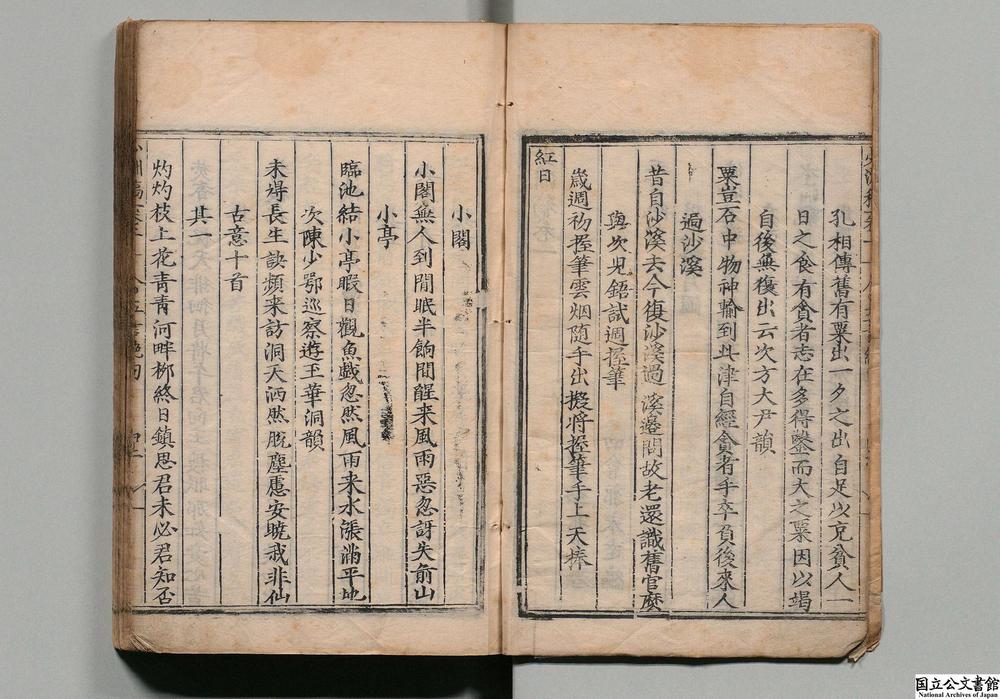 孔相傳舊有粟出一夕之出自足以充貧人一
日之食有貪者志在多得鑿而大之粟因以竭
自後無復出云次方大尹韻
粟豈石中物神輸到此津自經貪者手卒負後來人
過沙溪
昔自沙溪去今復沙溪過溪邊問故老還識舊官麼
與次兒鋙試週握筆
歲週初握筆雲烟隨手出擬將握筆手上天捧
紅日
小閣
小閣無人到閒眠半餉間醒来風雨惡忽訝失前山
小亭
臨池結小亭暇日觀魚戲忽然風雨来水漲滿平地
次陳少鄂巡察遊玉華洞韻
未得長生訣頻来訪洞天洒然脫塵慮安曉我非仙
古意十首
其一
灼灼枝上花靑靑河畔柳終日鎮思君未必君知否
国立公文書館
National Archives of Japan